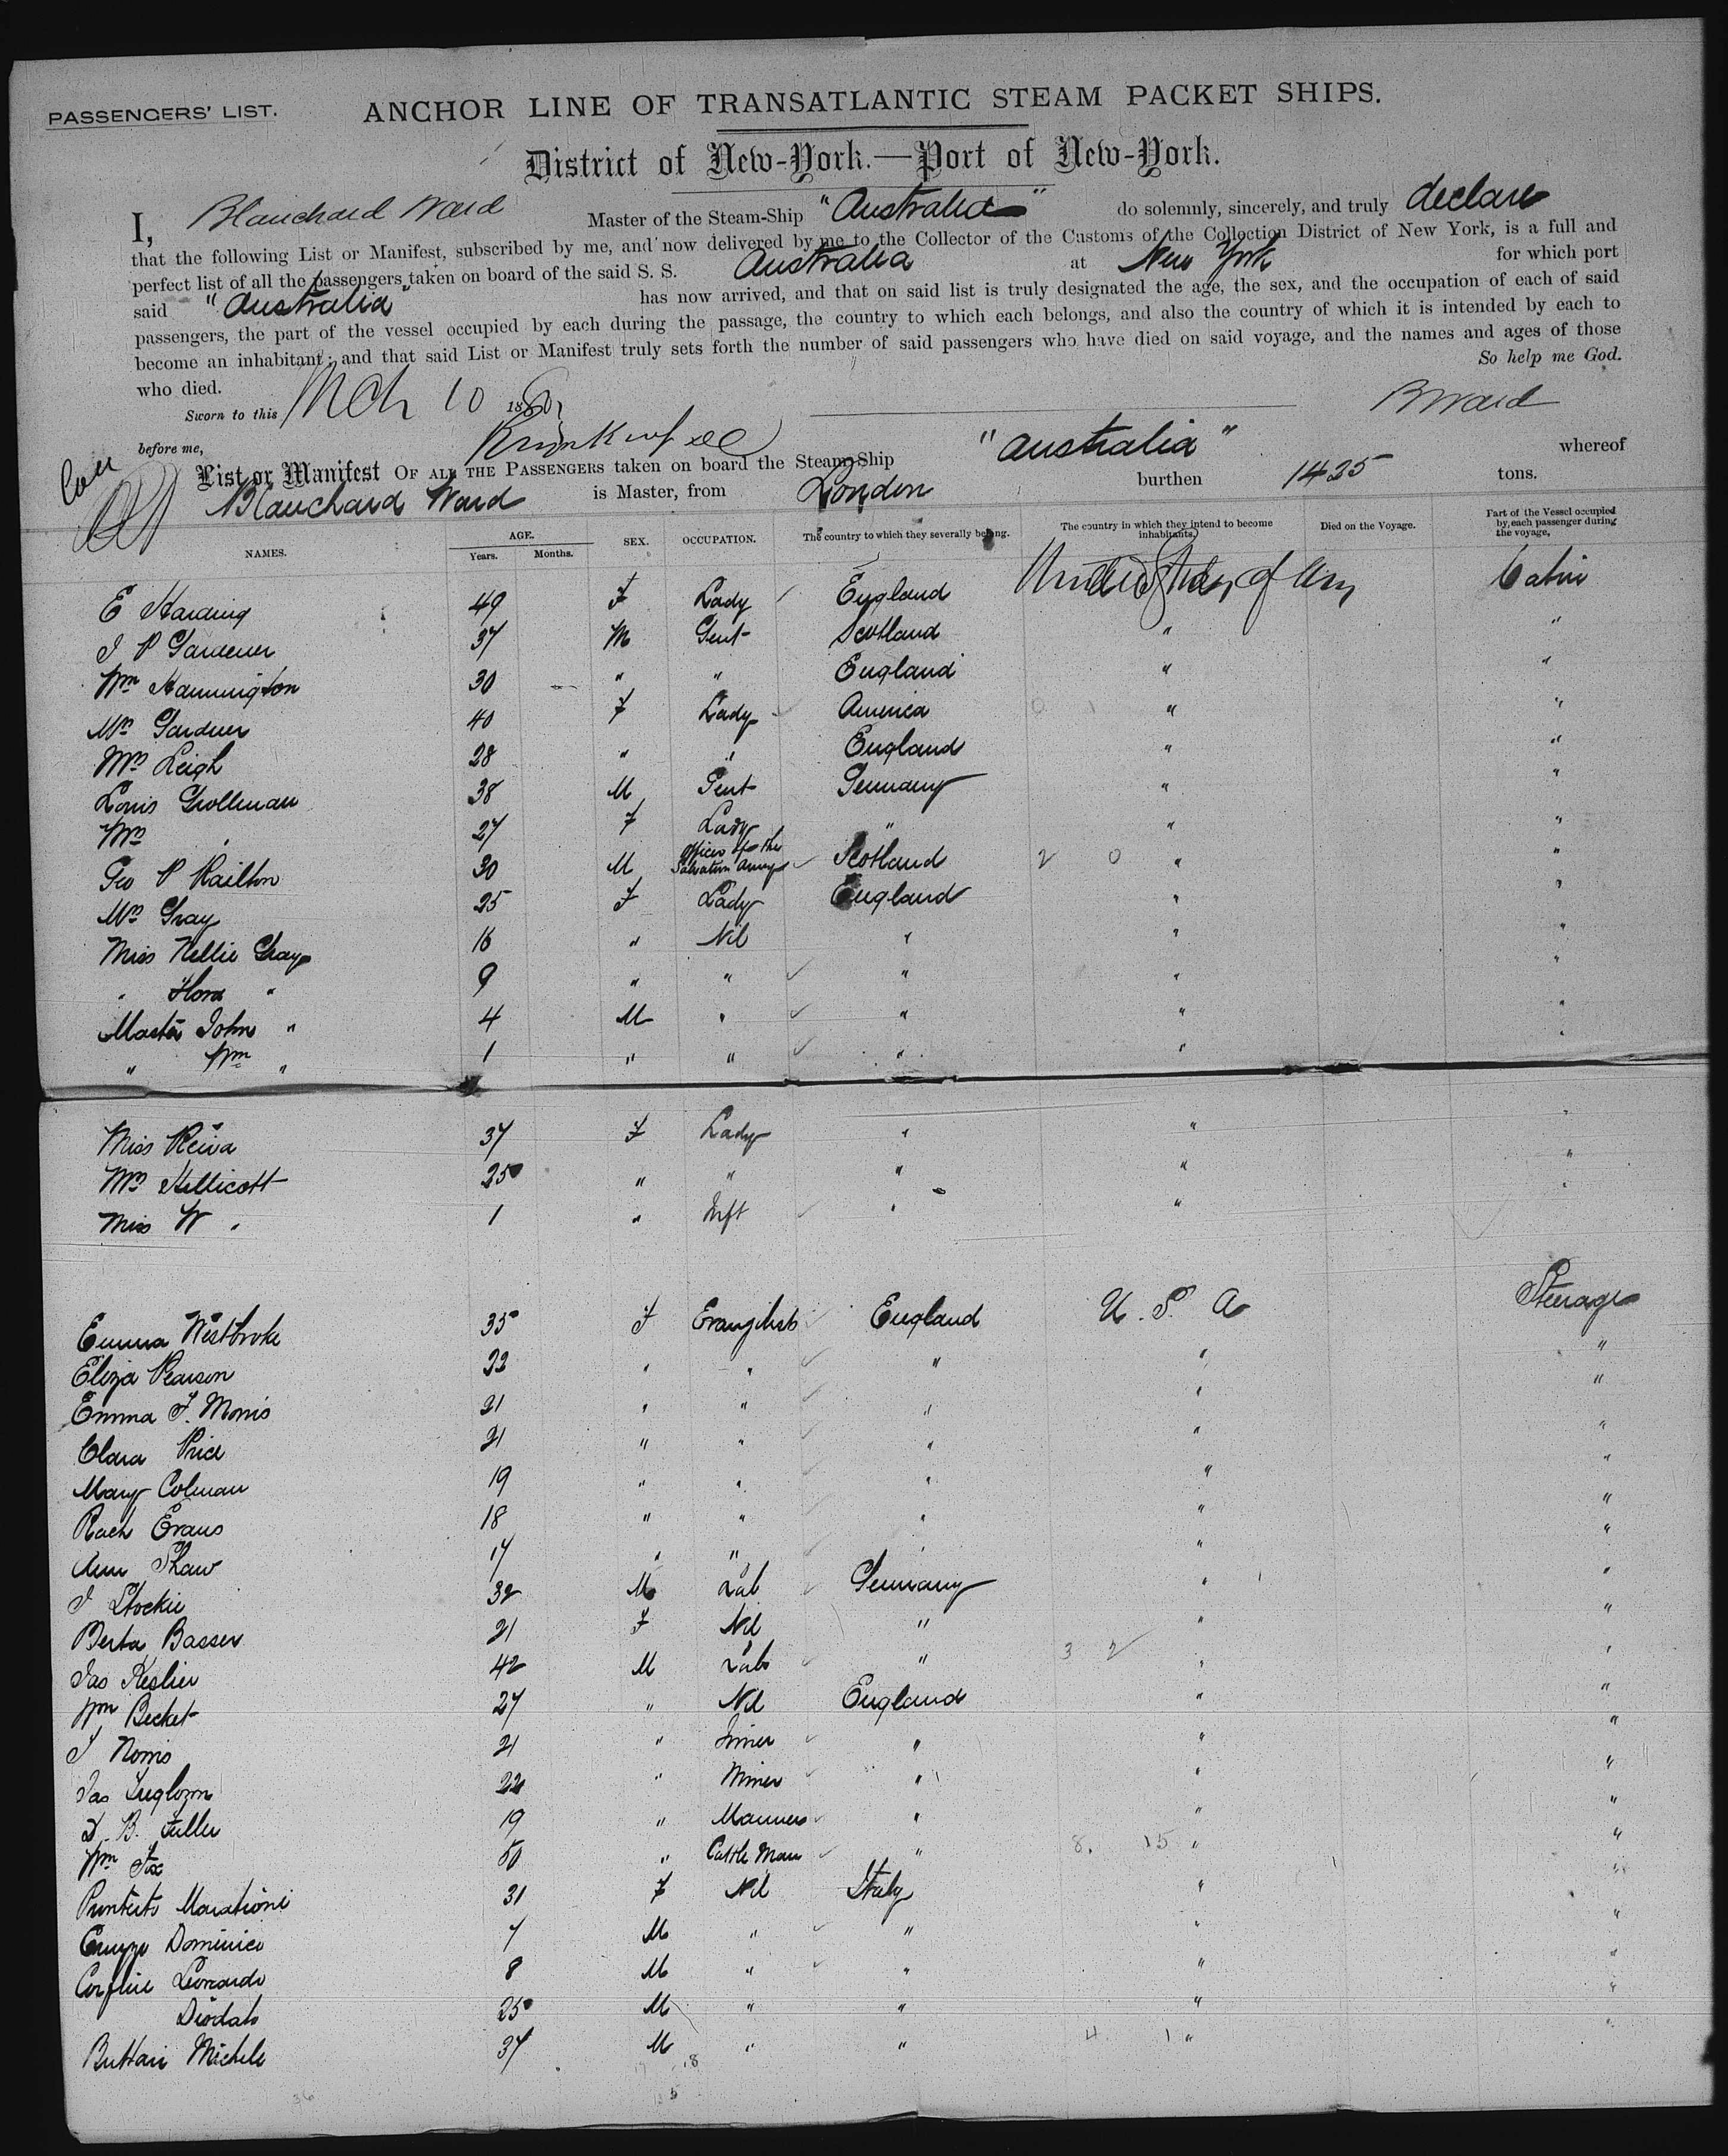 PASSENGERS' LIST.
ANCHOR LINE OF TRANSATLANTIC STEAM PACKET SHIPS.
District of New-York.—Port of New-York.
I, Blanchard Ward Master of the Steam-Ship "Australia" do solemnly, sincerely, and truly declare
that the following List or Manifest, subscribed by me, and now delivered by me to the Collector of the Customs of the Collection District of New York, is a full and
perfect list of all the passengers taken on board of the said S. S. Australia at New York for which port
said "Australia" has now arrived, and that on said list is truly designated the age, the sex, and the occupation of each of said
passengers, the part of the vessel occupied by each during the passage, the country to which each belongs, and also the country of which it is intended by each to
become an inhabitant; and that said List or Manifest truly sets forth the number of said passengers who have died on said voyage, and the names and ages of those
who died. So help me God.
Sworn to this Mch 10 1880
B Ward
before me,
List or Manifest OF ALL THE PASSENGERS taken on board the Steam-Ship "Australia" whereof
Blanchard Ward is Master, from London burthen 1425 tons.
NAMES. AGE. Years. Months. SEX. OCCUPATION. The country to which they severally belong. The country in which they intend to become inhabitants. Died on the Voyage. Part of the Vessel occupied by each passenger during the voyage.
E Harding 49 F Lady England United States of Am Cabin
J P Gardener 37 M Gent Scotland " "
Wm Hannington 30 " " England " "
Mrs Gardner 40 F Lady America " "
Mrs Leigh 28 " " England " "
Louis Grollman 38 M Gent Germany " "
Mrs " 27 F Lady " " "
Geo P Railton 30 M Officer of the Salvation Army Scotland 2 0 " "
Mrs Gray 25 F Lady England " "
Miss Nellie Gray 16 " Nil " " "
" Flora " 9 " " " " "
Master John " 4 M " " " "
" Wm " 1 " " " " "
Miss 37 F Lady " " "
Mrs Hellicott 25 " " " " "
Miss W " 1 " Inft " " "
Emma Westbroke 35 F Evangelist England U. S. A Steerage
Eliza Pearson 22 " " " " "
Emma F. Morris 21 " " " " "
Clara Price 21 " " " " "
Mary Colman 19 " " " " "
Rach Evans 18 " " " " "
Ann Shaw 17 " " " " "
J 32 M Lab Germany " "
Berta Basser 21 F Nil " " "
Jas Keslier 42 M Lab " 3 2 " "
Wm Becket 27 " Nil England " "
J Norris 21 " " " "
Jas 22 " Miner " " "
D. B. Fuller 19 " " " "
Wm Fox 50 " Cattle Man " 8. 15 " "
31 F Nil Italy " "
Dominico 7 M " " " "
Leonardo 8 M " " " "
Diodato 25 M " " " "
Buttari Michele 37 M " " 4 1 "
36